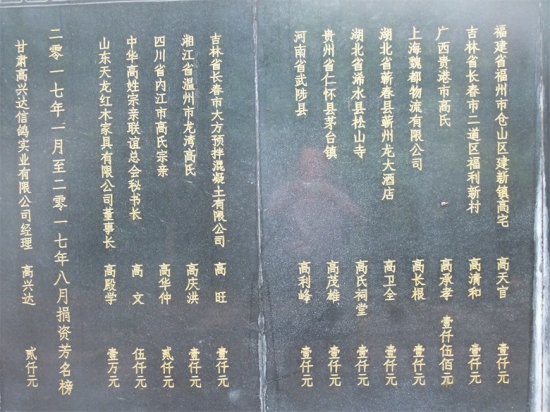 福建省福州市仓山区建新镇高宅 高天官 壹仟元
吉林省长春市二道区福利新村 高清和 壹仟元
广西贵港市高氏 高承幸 壹仟伍佰元
上海魏都物流有限公司 高长根 壹仟元
湖北省蕲春县蕲州龙大酒店 高卫全 壹仟元
湖北省浠水县捡山寺 高氏祠堂 壹仟元
贵州省仁怀县茅台镇 高茂雄 壹仟元
河南省武陟县 高利峰 壹仟元
吉林省长春市大方预拌混凝土有限公司 高旺 壹仟元
湘江省温州市龙湾高氏 高庆洪 壹仟元
四川省内江市高氏宗亲 高华仲 贰仟元
中华高姓宗亲联谊总会秘书长 高文 伍仟元
山东天龙红木家具有限公司董事长 高殿学 壹万元
二零一七年一月至二零一七年八月捐资芳名榜
甘肃高兴达信鸽实业有限公司经理 高兴达 贰仟元